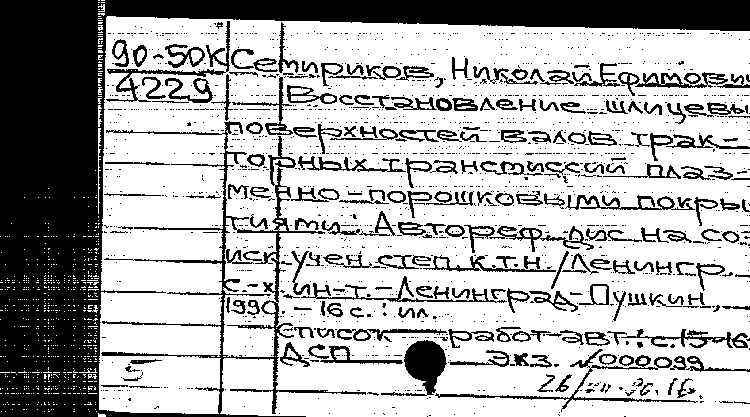 90-50К Семириков, Николай Ефимови
4229 Восстановление шлицевы
поверхностей валов трак-
торных трансмиссий плаз-
менно-порошковыми покры
тиями: Автореф. дис на со
иск учен степ. к.т.н./Ленингр.
с.-х. ин-т.-Ленинград-Пушкин,
1990. - 16 с. : ил.
Список работ авт.: с.15-16
ДСП Экз. №000099
5